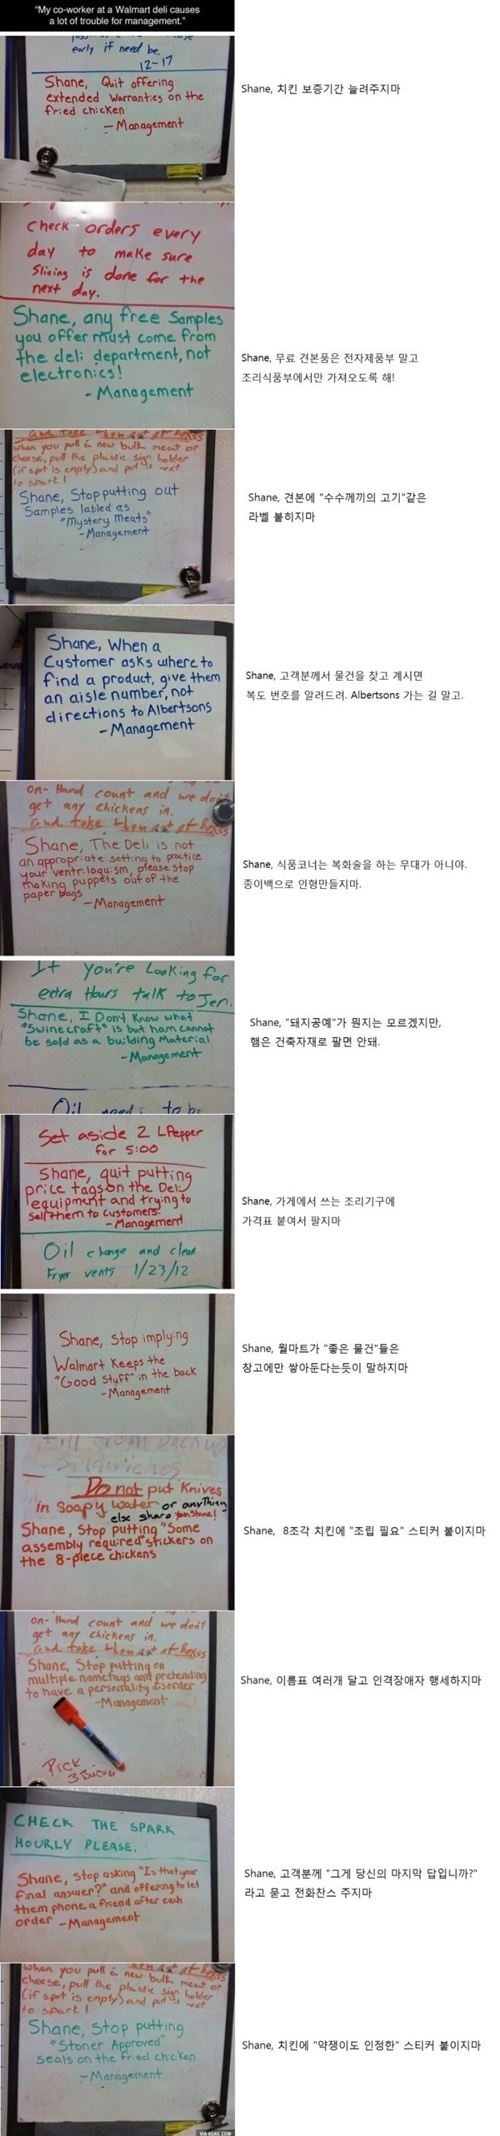 "My co-worker at a Walmart deli causes
a lot of trouble for management."
early if need be.
12-17
Shane, Quit offering
extended warranties on the
fried chicken
- Management
Shane, 치킨 보증기간 늘려주지마
check orders every
day to make sure
slicing is done for the
next day.
Shane, any free samples
you offer must come from
the deli department, not
electronics!
- Management
Shane, 무료 견본품은 전자제품부 말고
조리식품부에서만 가져오도록 해!
and take them out of boxes
when you pull a new bulk meat or
cheese, pull the plastic sign holder
(if spot is empty) and put it next
to spark!
Shane, Stop putting out
Samples labled as
"Mystery Meats"
- Management
Shane, 견본에 "수수께끼의 고기"같은
라벨 붙히지마
Shane, When a
Customer asks where to
find a product, give them
an aisle number, not
directions to Albertsons
- Management
Shane, 고객분께서 물건을 찾고 계시면
복도 번호를 알려드려. Albertsons 가는 길 말고.
on-Hand count and we don't
get any chickens in.
and take them out of boxes
Shane, The Deli is not
an appropriate setting to practice
your ventriloquism, please stop
making puppets out of the
paper bags
- Management
Shane, 식품코너는 복화술을 하는 무대가 아니야.
종이백으로 인형만들지마.
If you're Looking for
extra Hours talk to Jen.
Shane, I Don't Know what
"Swinecraft" is but ham cannot
be sold as a building material
- Management
Oil needs to be
Shane, "돼지공예"가 뭔지는 모르겠지만,
햄은 건축자재로 팔면 안돼.
Set aside 2 LPepper
for 5:00
Shane, quit putting
price tags on the Deli
equipment and trying to
sell them to customers.
- Management
Oil change and clean
Fryer vents 1/23/12
Shane, 가게에서 쓰는 조리기구에
가격표 붙여서 팔지마
Shane, stop implying
Walmart keeps the
"Good Stuff" in the back
- Management
Shane, 월마트가 "좋은 물건"들은
창고에만 쌓아둔다는듯이 말하지마
Do not put Knives
in soapy water or anything
else sharp
Shane, Stop putting "Some
assembly required" stickers on
the 8-piece chickens
Shane, 8조각 치킨에 "조립 필요" 스티커 붙이지마
on-Hand count and we don't
get any chickens in.
and take them out of boxes
Shane, Stop putting on
multiple nametags and pretending
to have a personality disorder
- Management
Pick
3
Shane, 이름표 여러개 달고 인격장애자 행세하지마
CHECK THE SPARK
HOURLY PLEASE.
Shane, stop asking "Is that your
final answer?" and offering to let
them phone a friend after each
order - Management
Shane, 고객분께 "그게 당신의 마지막 답입니까?"
라고 묻고 전화찬스 주지마
when you pull a new bulk meat or
cheese, pull the plastic sign holder
(if spot is empty) and put it next
to spark!
Shane, Stop putting
"Stoner Approved"
seals on the fried chicken
- Management
Shane, 치킨에 "약쟁이도 인정한" 스티커 붙이지마
VIA 9GAG.COM